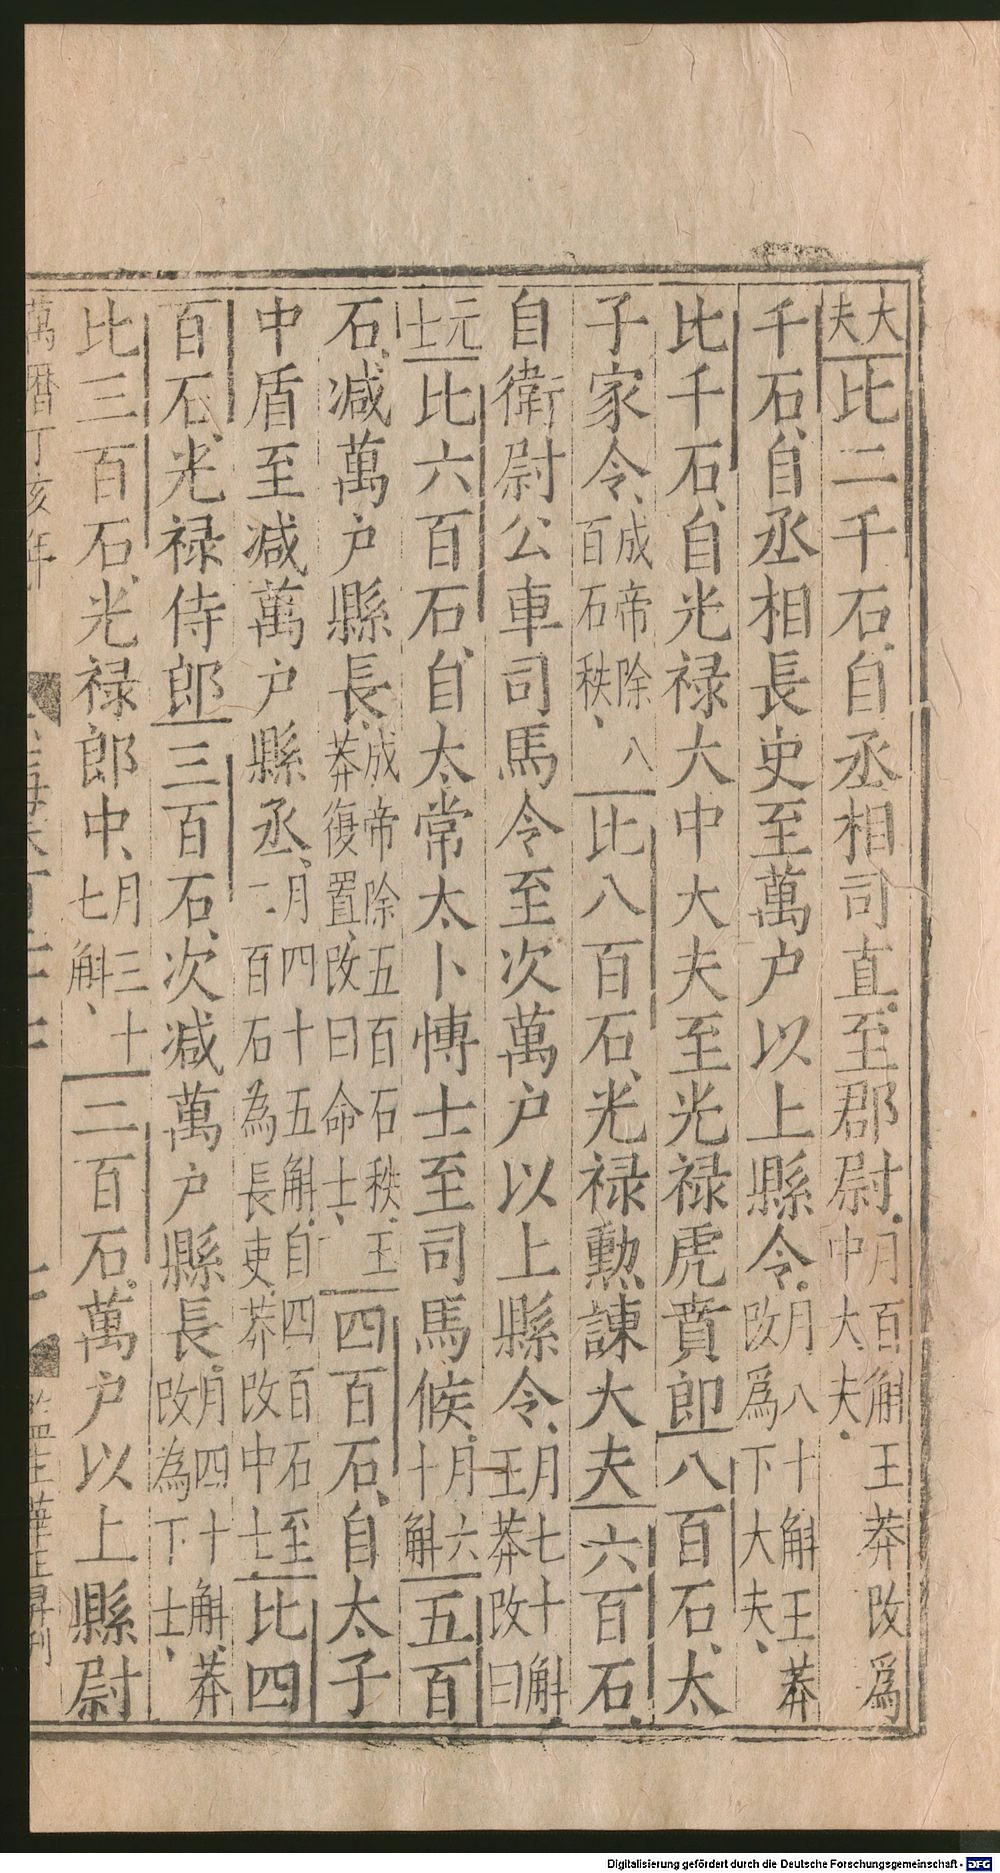 大夫比二千石自丞相司直至郡尉月百斛王莽改爲中大夫
千石自丞相長史至萬户以上縣令月八十斛王莽改爲下大夫
比千石自光禄大中大夫至光禄虎賁郎八百石太
子家令成帝除八百石秩比八百石光禄勲諫大夫六百石
自衛尉公車司馬令至次萬户以上縣令月七十斛王莽改曰
元士比六百石自太常太卜愽士至司馬候月六十斛五百
石減萬户縣長成帝除五百石秩王莽復置改曰命士四百石自太子
中盾至減萬户縣丞月四十五斛自四百石至二百石為長吏莽改中士比四
百石光禄侍郎三百石次減萬户縣長月四十斛莽改為下士
比三百石光禄郎中月三十七斛二百石萬户以上縣尉
萬曆丁亥年
Digitalisierung gefördert durch die Deutsche Forschungsgemeinschaft - DFG